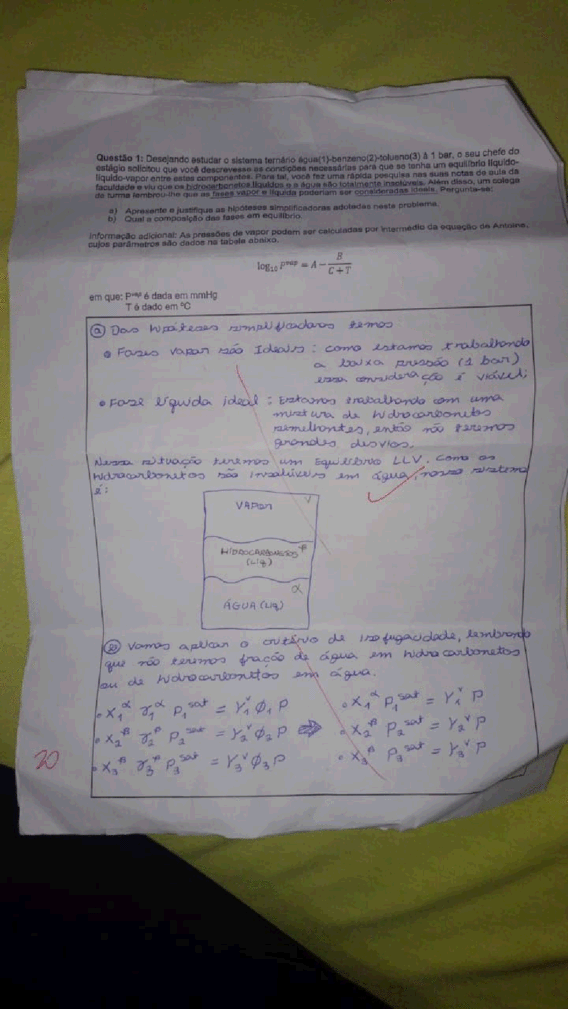 Questão 1: Desejando estudar o sistema ternário água(1)-benzeno(2)-tolueno(3) à 1 bar, o seu chefe do
estágio solicitou que você descrevesse as condições necessárias para que se tenha um equilíbrio líquido-
líquido-vapor entre estes componentes. Para tal, você fez uma rápida pesquisa nas suas notas de aula da
faculdade e viu que os hidrocarbonetos líquidos e a água são totalmente insolúveis. Além disso, um colega
de turma lembrou-lhe que as fases vapor e líquida poderiam ser consideradas ideais. Pergunta-se:
a) Apresente e justifique as hipóteses simplificadoras adotadas neste problema.
b) Qual a composição das fases em equilíbrio.
Informação adicional: As pressões de vapor podem ser calculadas por intermédio da equação de Antoine,
cujos parâmetros são dados na tabela abaixo.
log₁₀ Pᵛᵃᵖ = A − B / (C + T)
em que: Pᵛᵃᵖ é dada em mmHg
T é dado em ºC
a) Das hipóteses simplificadoras temos
• Fases vapor são Ideais: como estamos trabalhando
a baixa pressão (1 bar)
essa consideração é viável;
• Fase líquida ideal: Estamos trabalhando com uma
mistura de hidrocarbonetos
semelhantes, então não teremos
grandes desvios.
Nessa situação teremos um Equilíbrio LLV. Como os
hidrocarbonetos são insolúveis em água, nosso sistema
é:
V
VAPOR
β
HIDROCARBONETOS
(Liq)
α
ÁGUA (Liq)
b) Vamos aplicar o critério de isofugacidade, lembrando
que não teremos fração de água em hidrocarbonetos
ou de hidrocarbonetos em água.
• x₁ᵅ γ₁ᵅ P₁ˢᵃᵗ = Y₁ᵛ ϕ₁ P • x₁ᵅ P₁ˢᵃᵗ = Y₁ᵛ P
• x₂ᵝ γ₂ᵝ P₂ˢᵃᵗ = Y₂ᵛ ϕ₂ P ⇒ • x₂ᵝ P₂ˢᵃᵗ = Y₂ᵛ P
• x₃ᵝ γ₃ᵝ P₃ˢᵃᵗ = Y₃ᵛ ϕ₃ P • x₃ᵝ P₃ˢᵃᵗ = Y₃ᵛ P